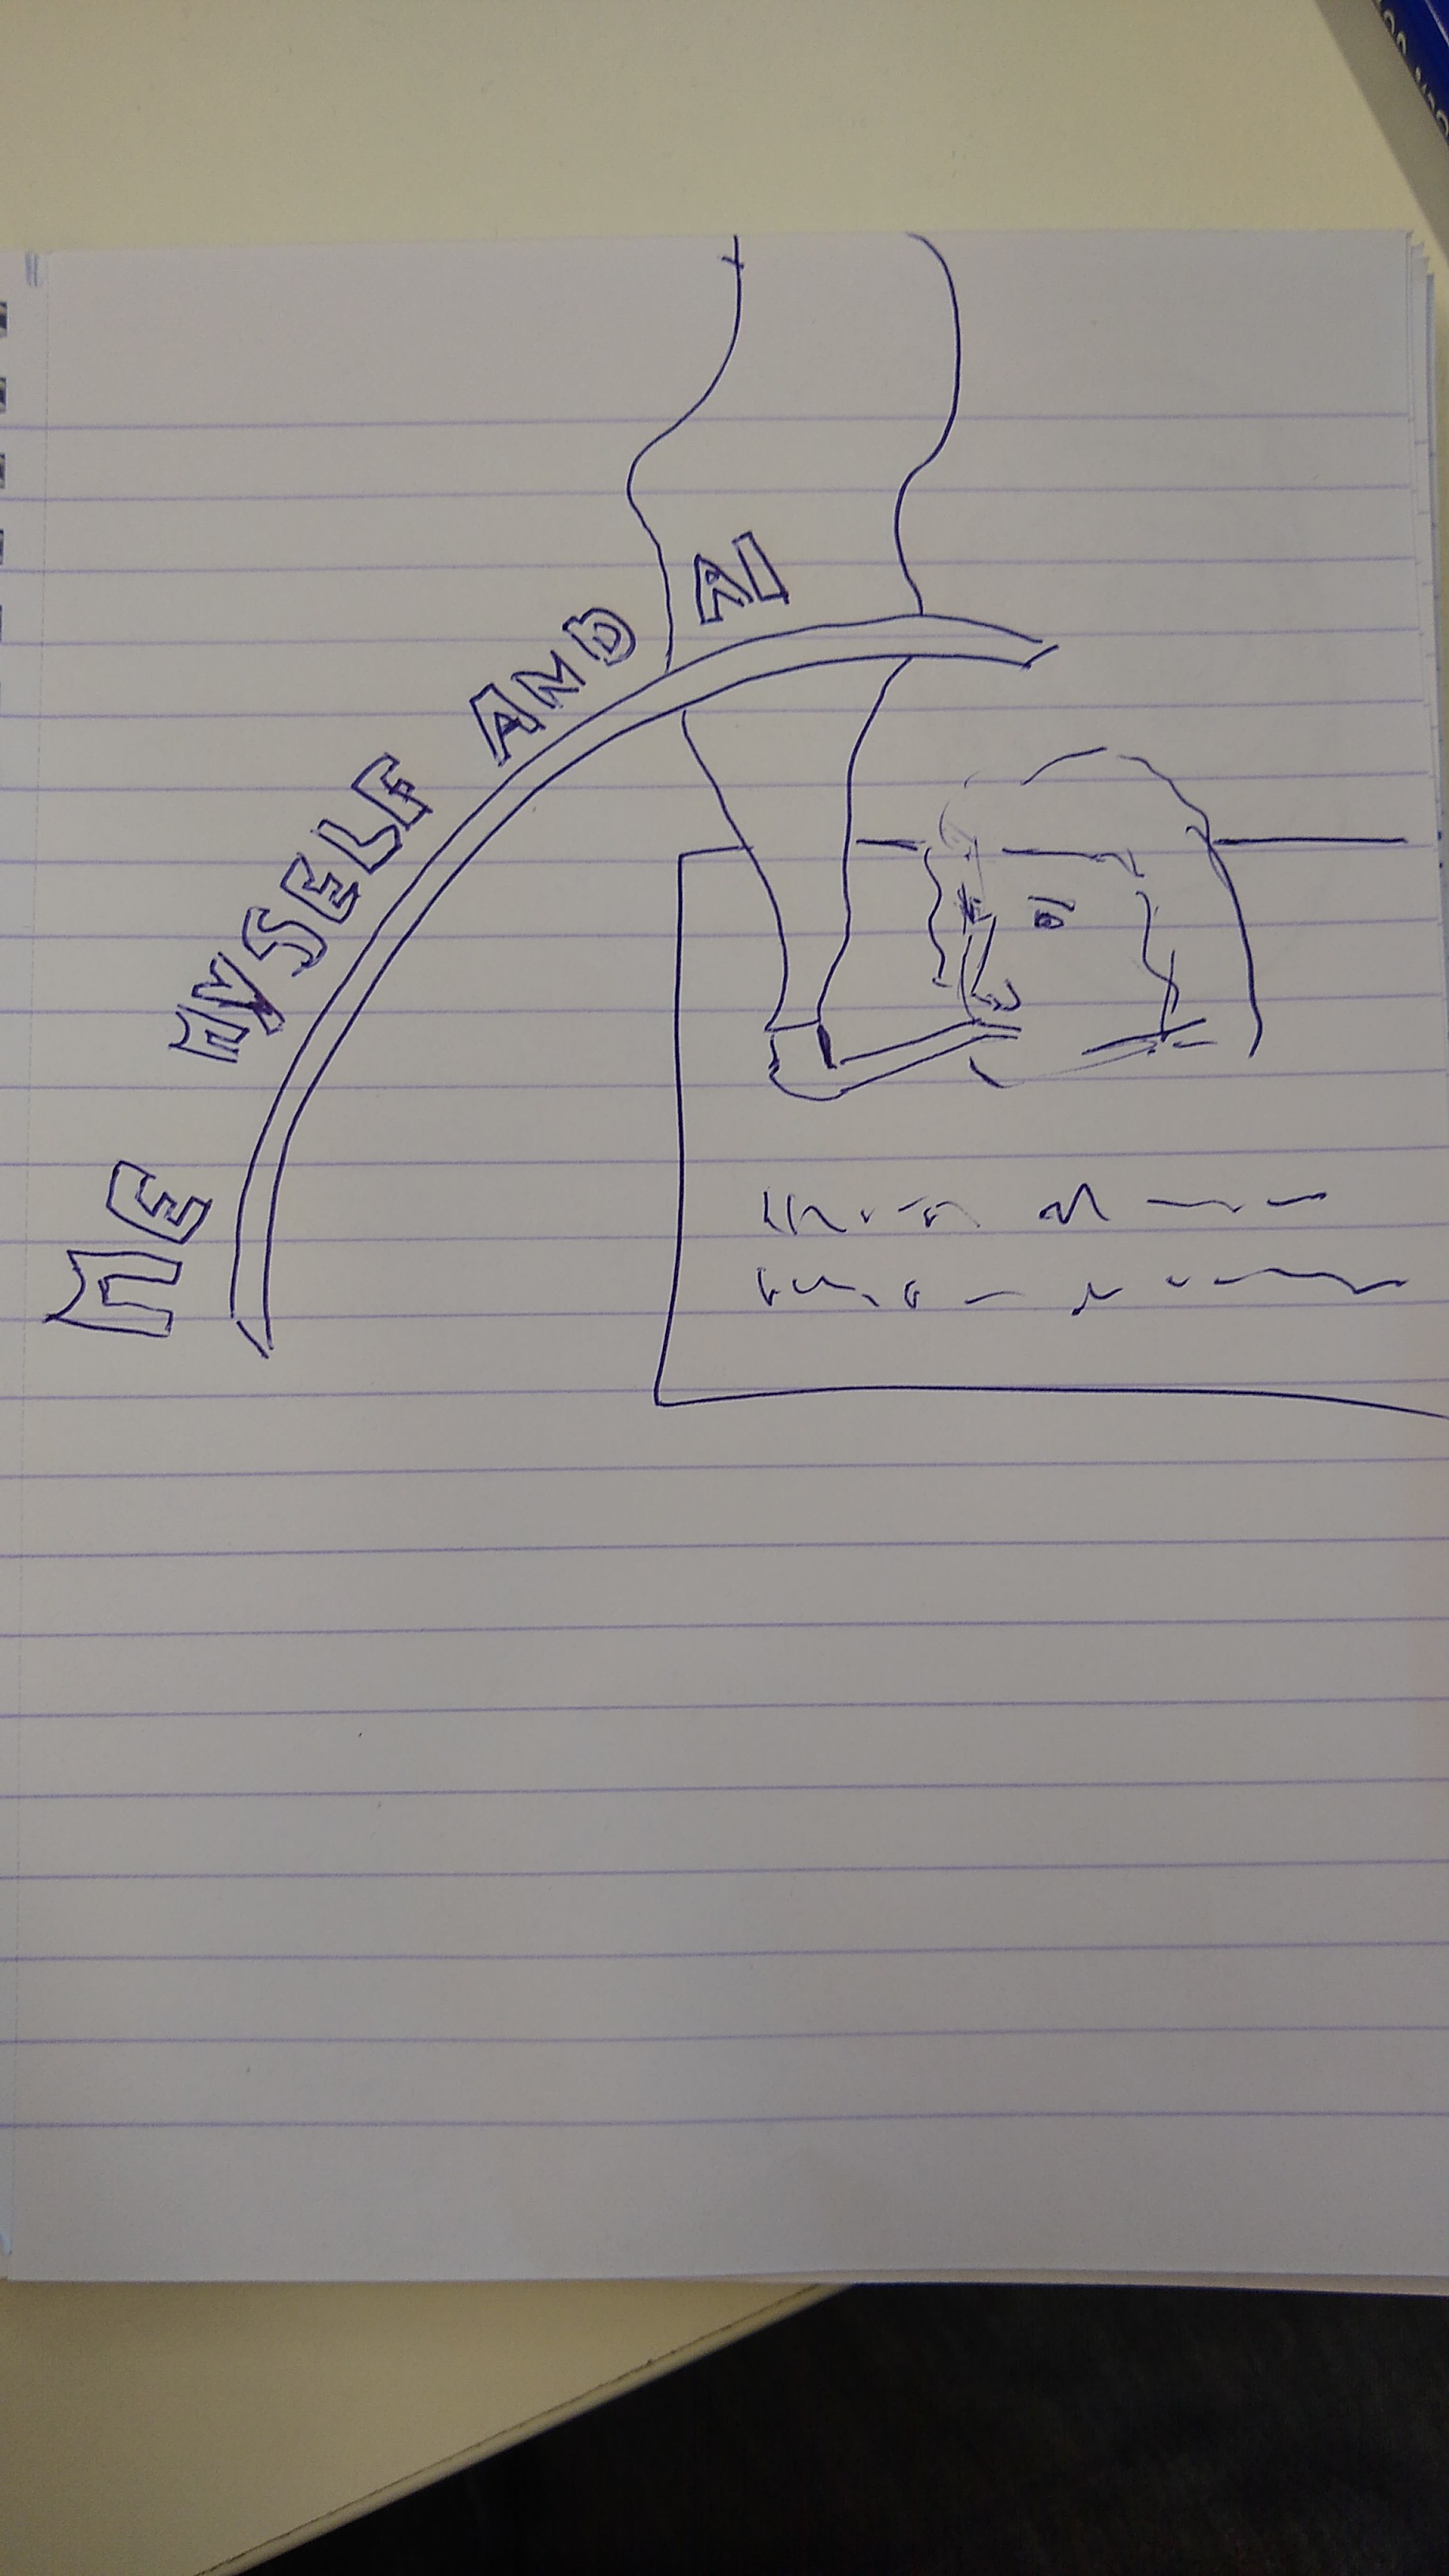 ME MYSELF AND AI